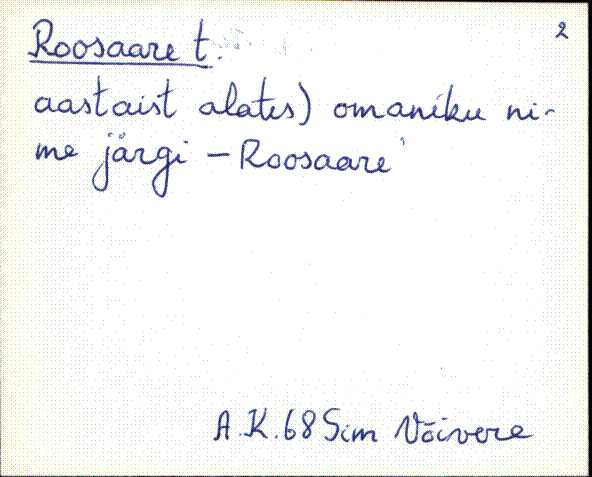 Roosaare t.
2
aastaist alates) omaniku ni-
me järgi – Roosaare'
A.K.68 Sim Võivere